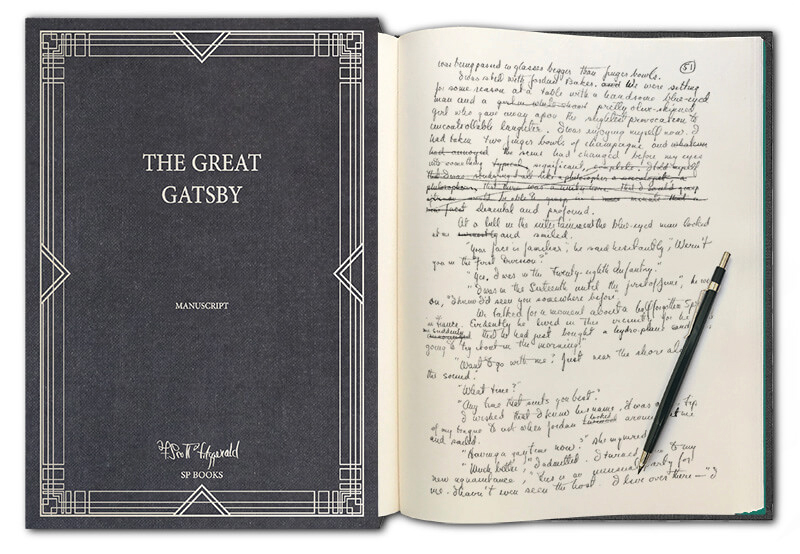 THE GREAT
GATSBY
MANUSCRIPT
F Scott Fitzgerald
SP BOOKS
51
was being passed in glasses bigger than finger bowls.
I was still with Jordan Baker. We were sitting
for some reason at a table with a handsome blue-eyed
man and a pretty olive-skinned
girl who gave way upon the slightest provocation to
uncontrollable laughter. I was enjoying myself now. I
had taken two finger bowls of champagne and
had the scene had changed before my eyes
into something significant,
elemental and profound.
At a lull in the entertainment the blue-eyed man looked
at me and smiled.
"Your face is familiar", he said hesitantly, "Weren't
you in the First Division?"
"Yes. I was in the Twenty-eighth Infantry."
"I was in the Sixteenth until the first of June",
on, "I knew I'd seen you somewhere before."
We talked for a moment about a half forgotten
in France. Evidently he lived in this vicinity for he
me suddenly that he had just bought a hydroplane and
going to try it out in the morning."
"Want to go with me? Just near the shore
the sound."
"What time?"
"Any time that suits you best."
I wished that I knew his name. It was
of my tongue to ask when Jordan looked around
and smiled.
"Having a gay time now?" she inquired
"Much better," I admitted. I turned to my
new aquaintance, "This is an unusual party for
me. I haven't even seen the host. I live over there—" I